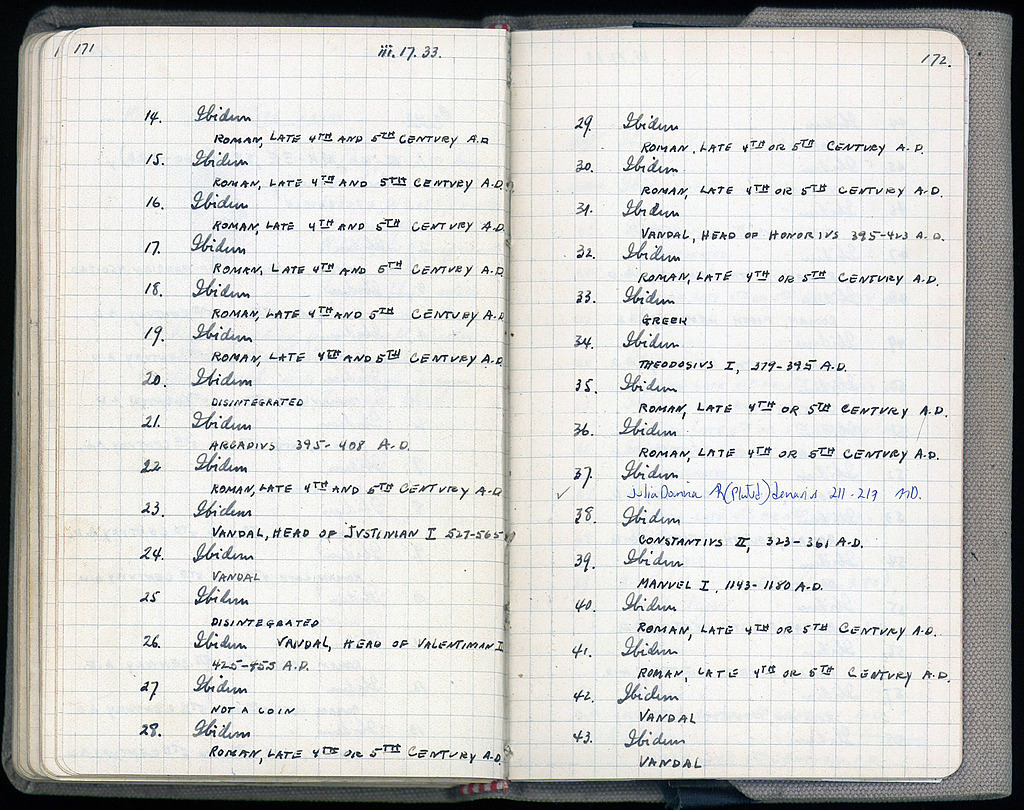 171
iii. 17. 33.
14. Ibidem
ROMAN, LATE 4TH AND 5TH CENTURY A.D
15. Ibidem
ROMAN, LATE 4TH AND 5TH CENTURY A.D.
16. Ibidem
ROMAN, LATE 4TH AND 5TH CENTURY A.D
17. Ibidem
ROMAN, LATE 4TH AND 5TH CENTURY A.D
18. Ibidem
ROMAN, LATE 4TH AND 5TH CENTURY A.D.
19. Ibidem
ROMAN, LATE 4TH AND 5TH CENTURY A.D.
20. Ibidem
DISINTEGRATED
21. Ibidem
ARCADIUS 395-408 A.D.
22 Ibidem
ROMAN, LATE 4TH AND 5TH CENTURY A.D
23. Ibidem
VANDAL, HEAD OF JVSTINIAN I 527-565
24. Ibidem
VANDAL
25 Ibidem
DISINTEGRATED
26 Ibidem VANDAL, HEAD OF VALENTINIAN
425-455 A.D.
27 Ibidem
NOT A COIN
28. Ibidem
ROMAN, LATE 4TH OR 5TH CENTURY A.D.
172.
29. Ibidem
ROMAN, LATE 4TH OR 5TH CENTURY A.D.
30. Ibidem
ROMAN, LATE 4TH OR 5TH CENTURY A.D.
31. Ibidem
VANDAL, HEAD OF HONORIVS 395-423 A.D.
32. Ibidem
ROMAN, LATE 4TH OR 5TH CENTURY A.D.
33. Ibidem
GREEK
34. Ibidem
THEODOSIUS I, 379-395 A.D.
35. Ibidem
ROMAN, LATE 4TH OR 5TH CENTURY A.D.
36. Ibidem
ROMAN, LATE 4TH OR 5TH CENTURY A.D.
37. Ibidem
Julia Domna AR (Plated) denarius 211-217 AD.
38. Ibidem
CONSTANTIVS II, 323-361 A.D.
39. Ibidem
MANVEL I, 1143-1180 A.D.
40. Ibidem
ROMAN, LATE 4TH OR 5TH CENTURY A.D.
41. Ibidem
ROMAN, LATE 4TH OR 5TH CENTURY A.D.
42. Ibidem
VANDAL
43. Ibidem
VANDAL